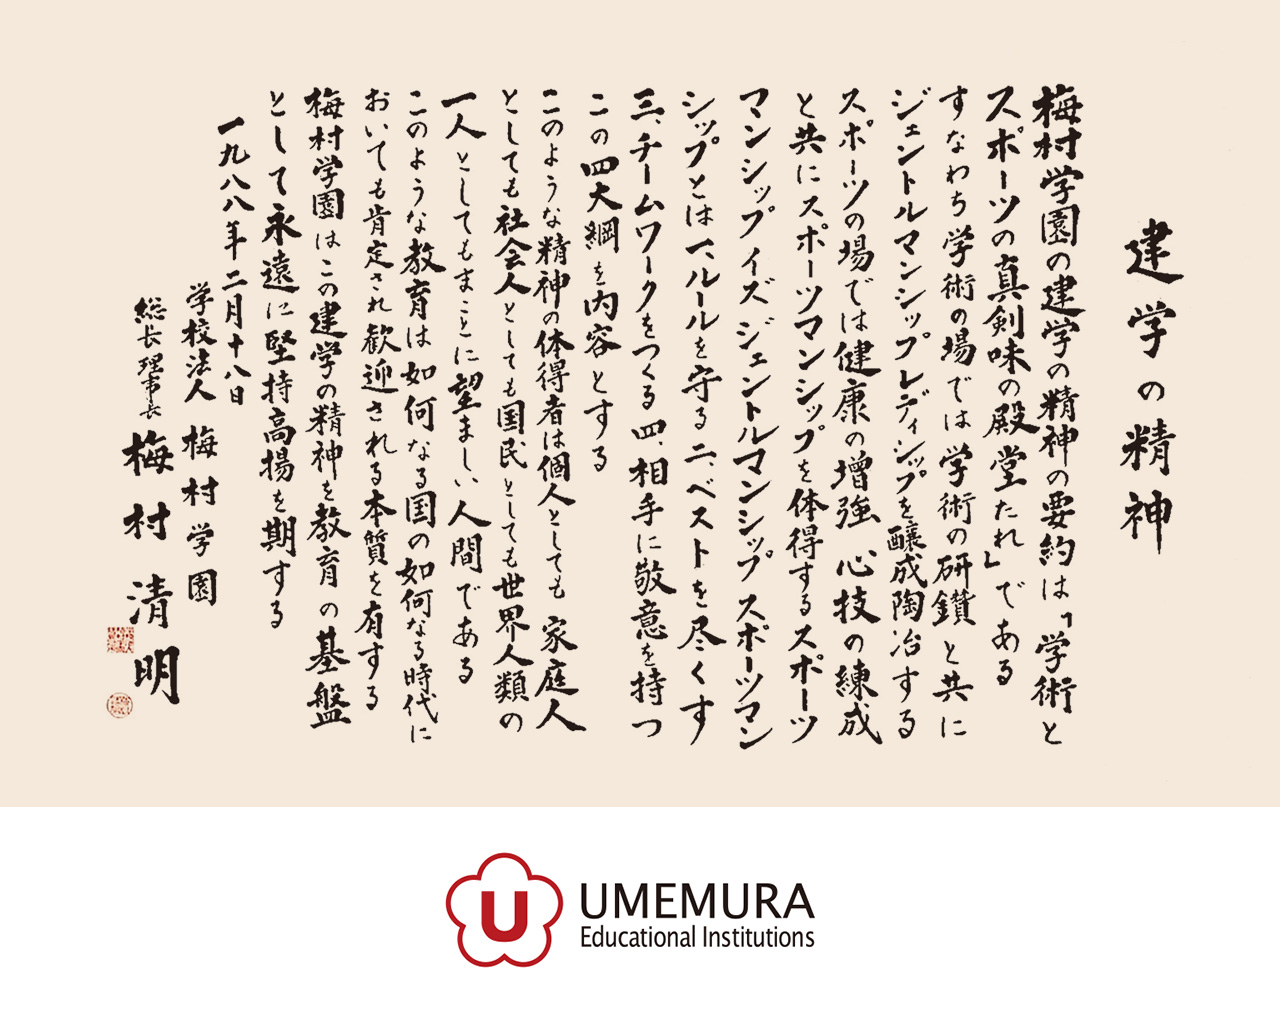 建学の精神
梅村学園の建学の精神の要約は「学術と
スポーツの真剣味の殿堂たれ」である
すなわち学術の場では学術の研鑽と共に
ジェントルマンシップレディシップを醸成陶冶する
スポーツの場では健康の増強 心技の練成
と共にスポーツマンシップを体得するスポーツ
マンシップイズジェントルマンシップ スポーツマン
シップとは一、ルールを守る 二、ベストを尽くす
三、チームワークをつくる 四、相手に敬意を持つ
この四大綱を内容とする
このような精神の体得者は個人としても 家庭人
としても社会人としても国民としても世界人類の
一人としてもまことに望ましい人間である
このような教育は如何なる国の如何なる時代に
おいても肯定され歓迎される本質を有する
梅村学園はこの建学の精神を教育の基盤
として永遠に堅持高揚を期する
一九八八年二月十八日
学校法人 梅村学園
総長理事長 梅村清明
U
UMEMURA
Educational Institutions